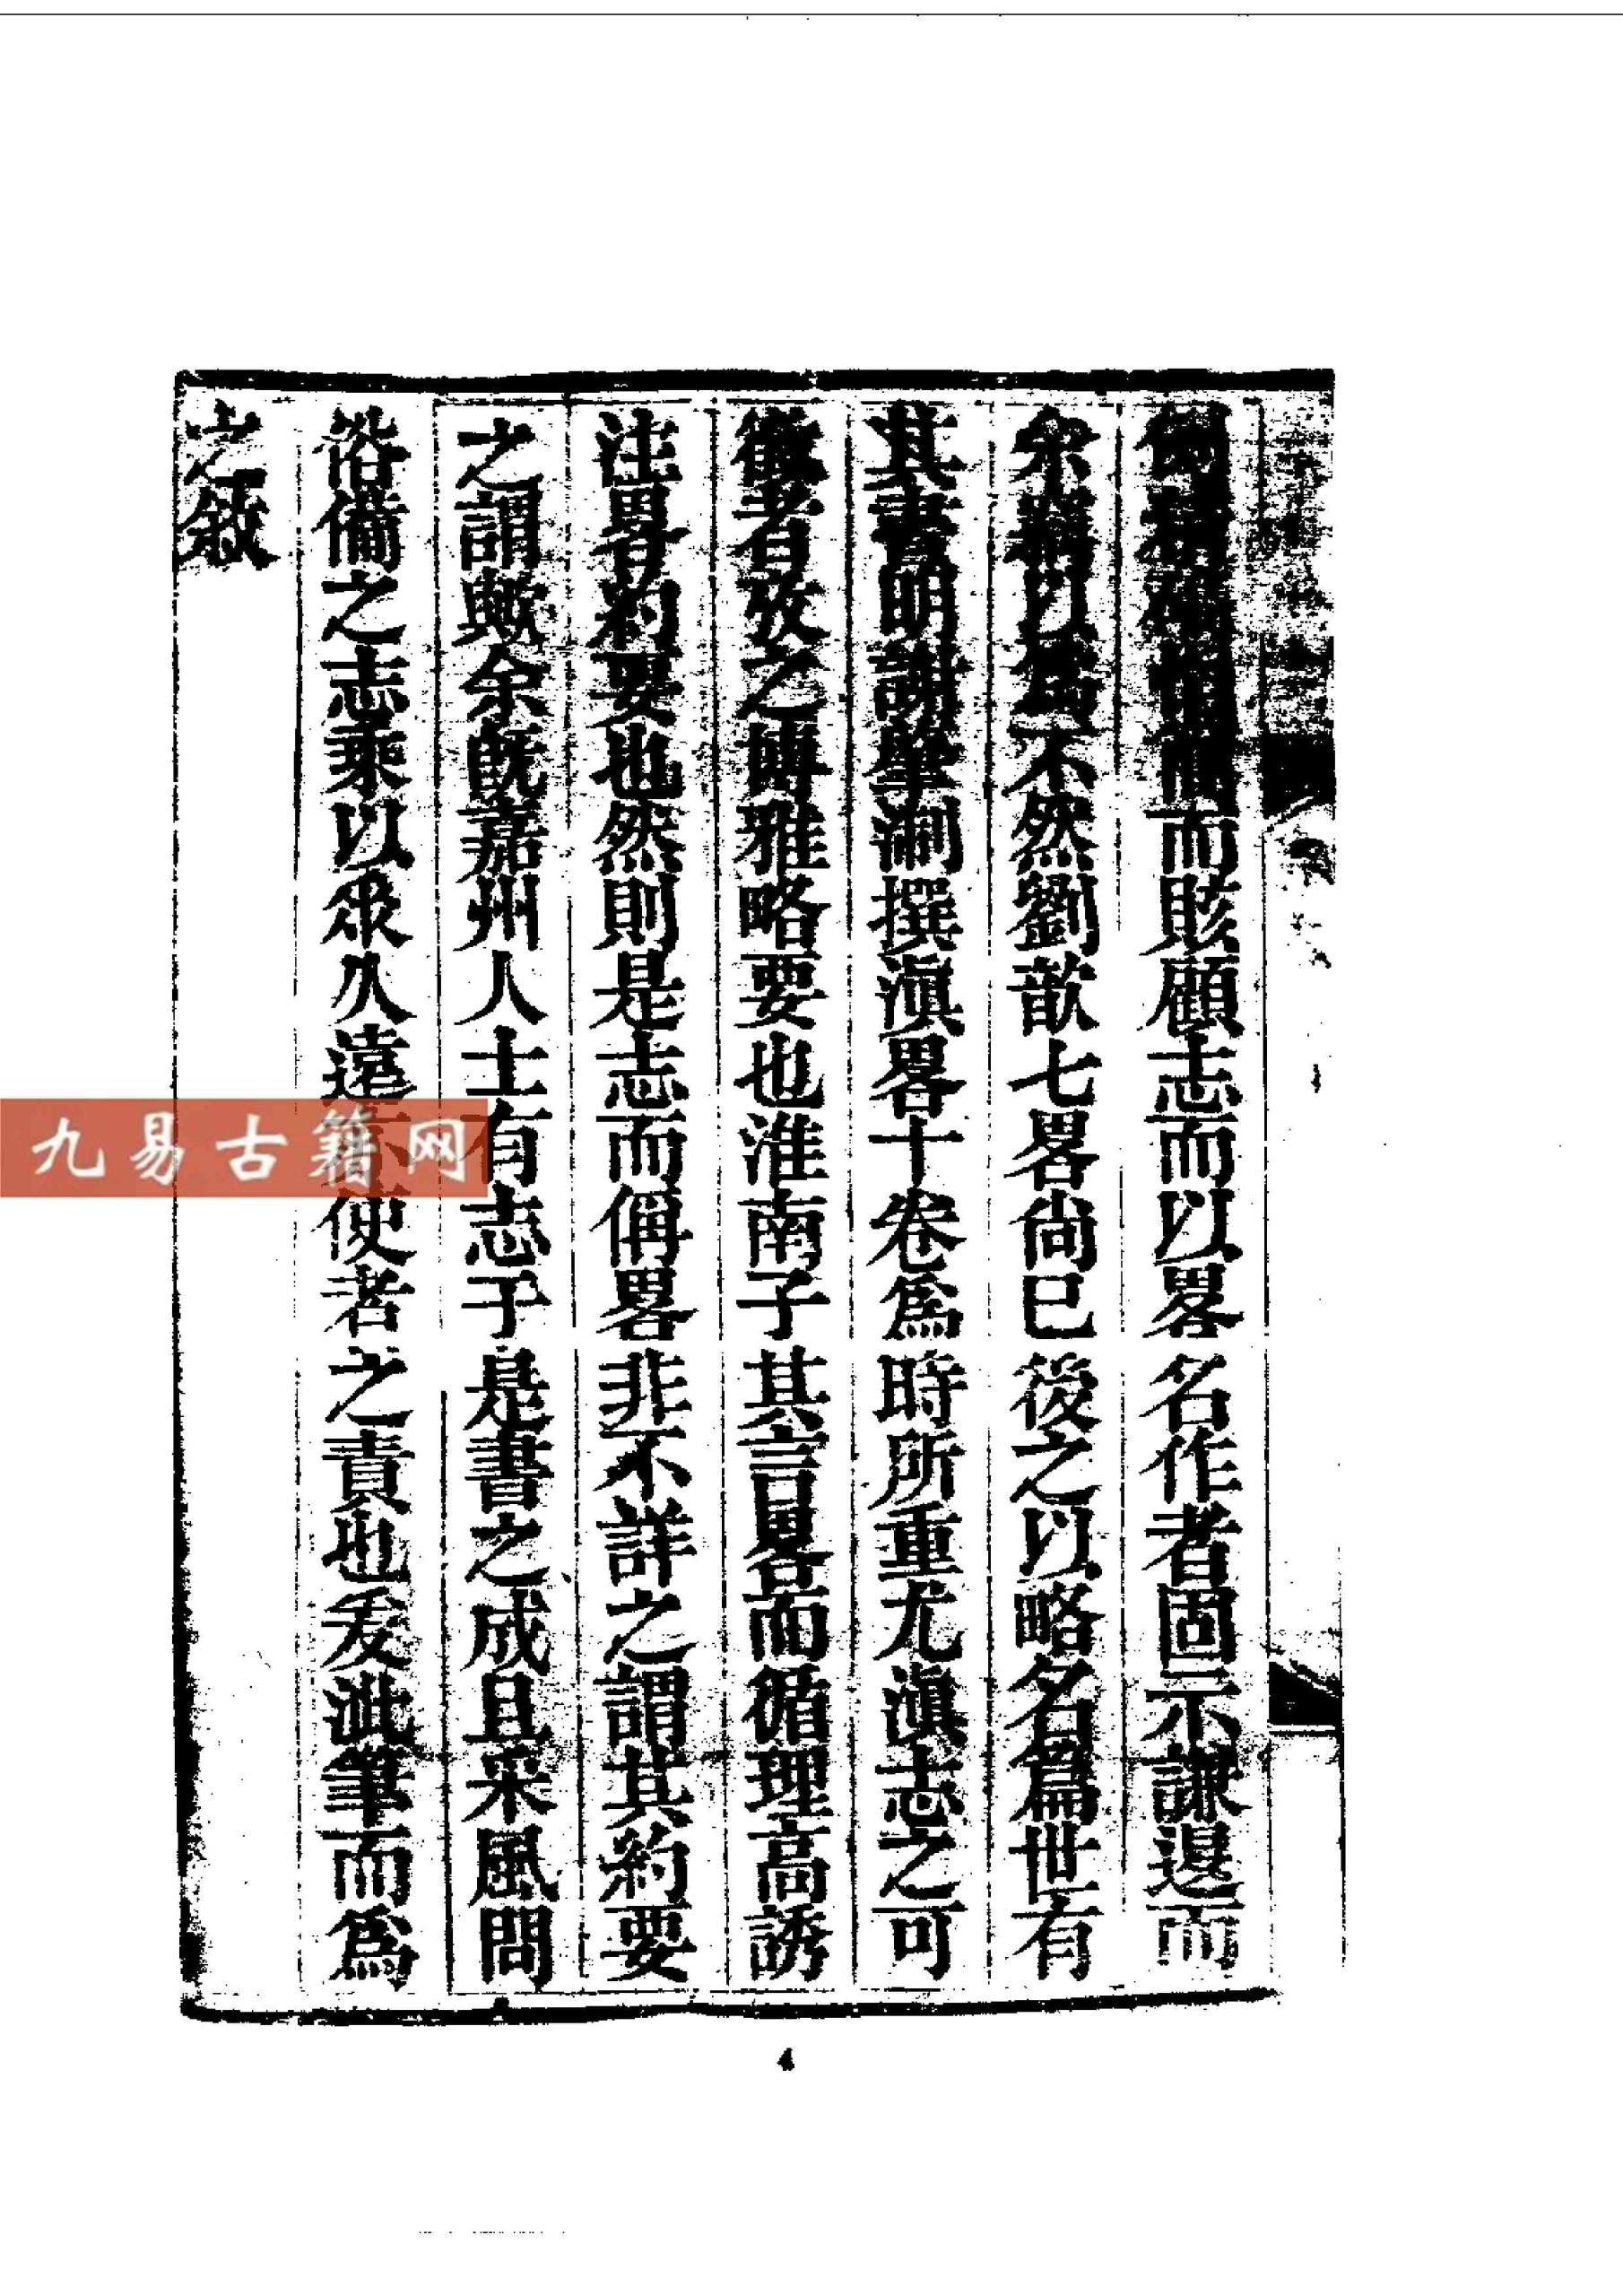 而賅顧志而以畧名作者固示謙遜而
余竊以爲不然劉歆七畧尚巳後之以略名篇世有
其書明謝肇淛撰滇畧十卷爲時所重尤滇志之可
徵者攷之博雅略要也淮南子其言畧而循理高誘
注畧約要也然則是志而偁畧非不詳之謂其約要
之謂歟余旣嘉州人士有志于是書之成且采風問
俗備之志乘以眾久遠使者之責也爰泚筆而爲
之敘
九易古籍网
4